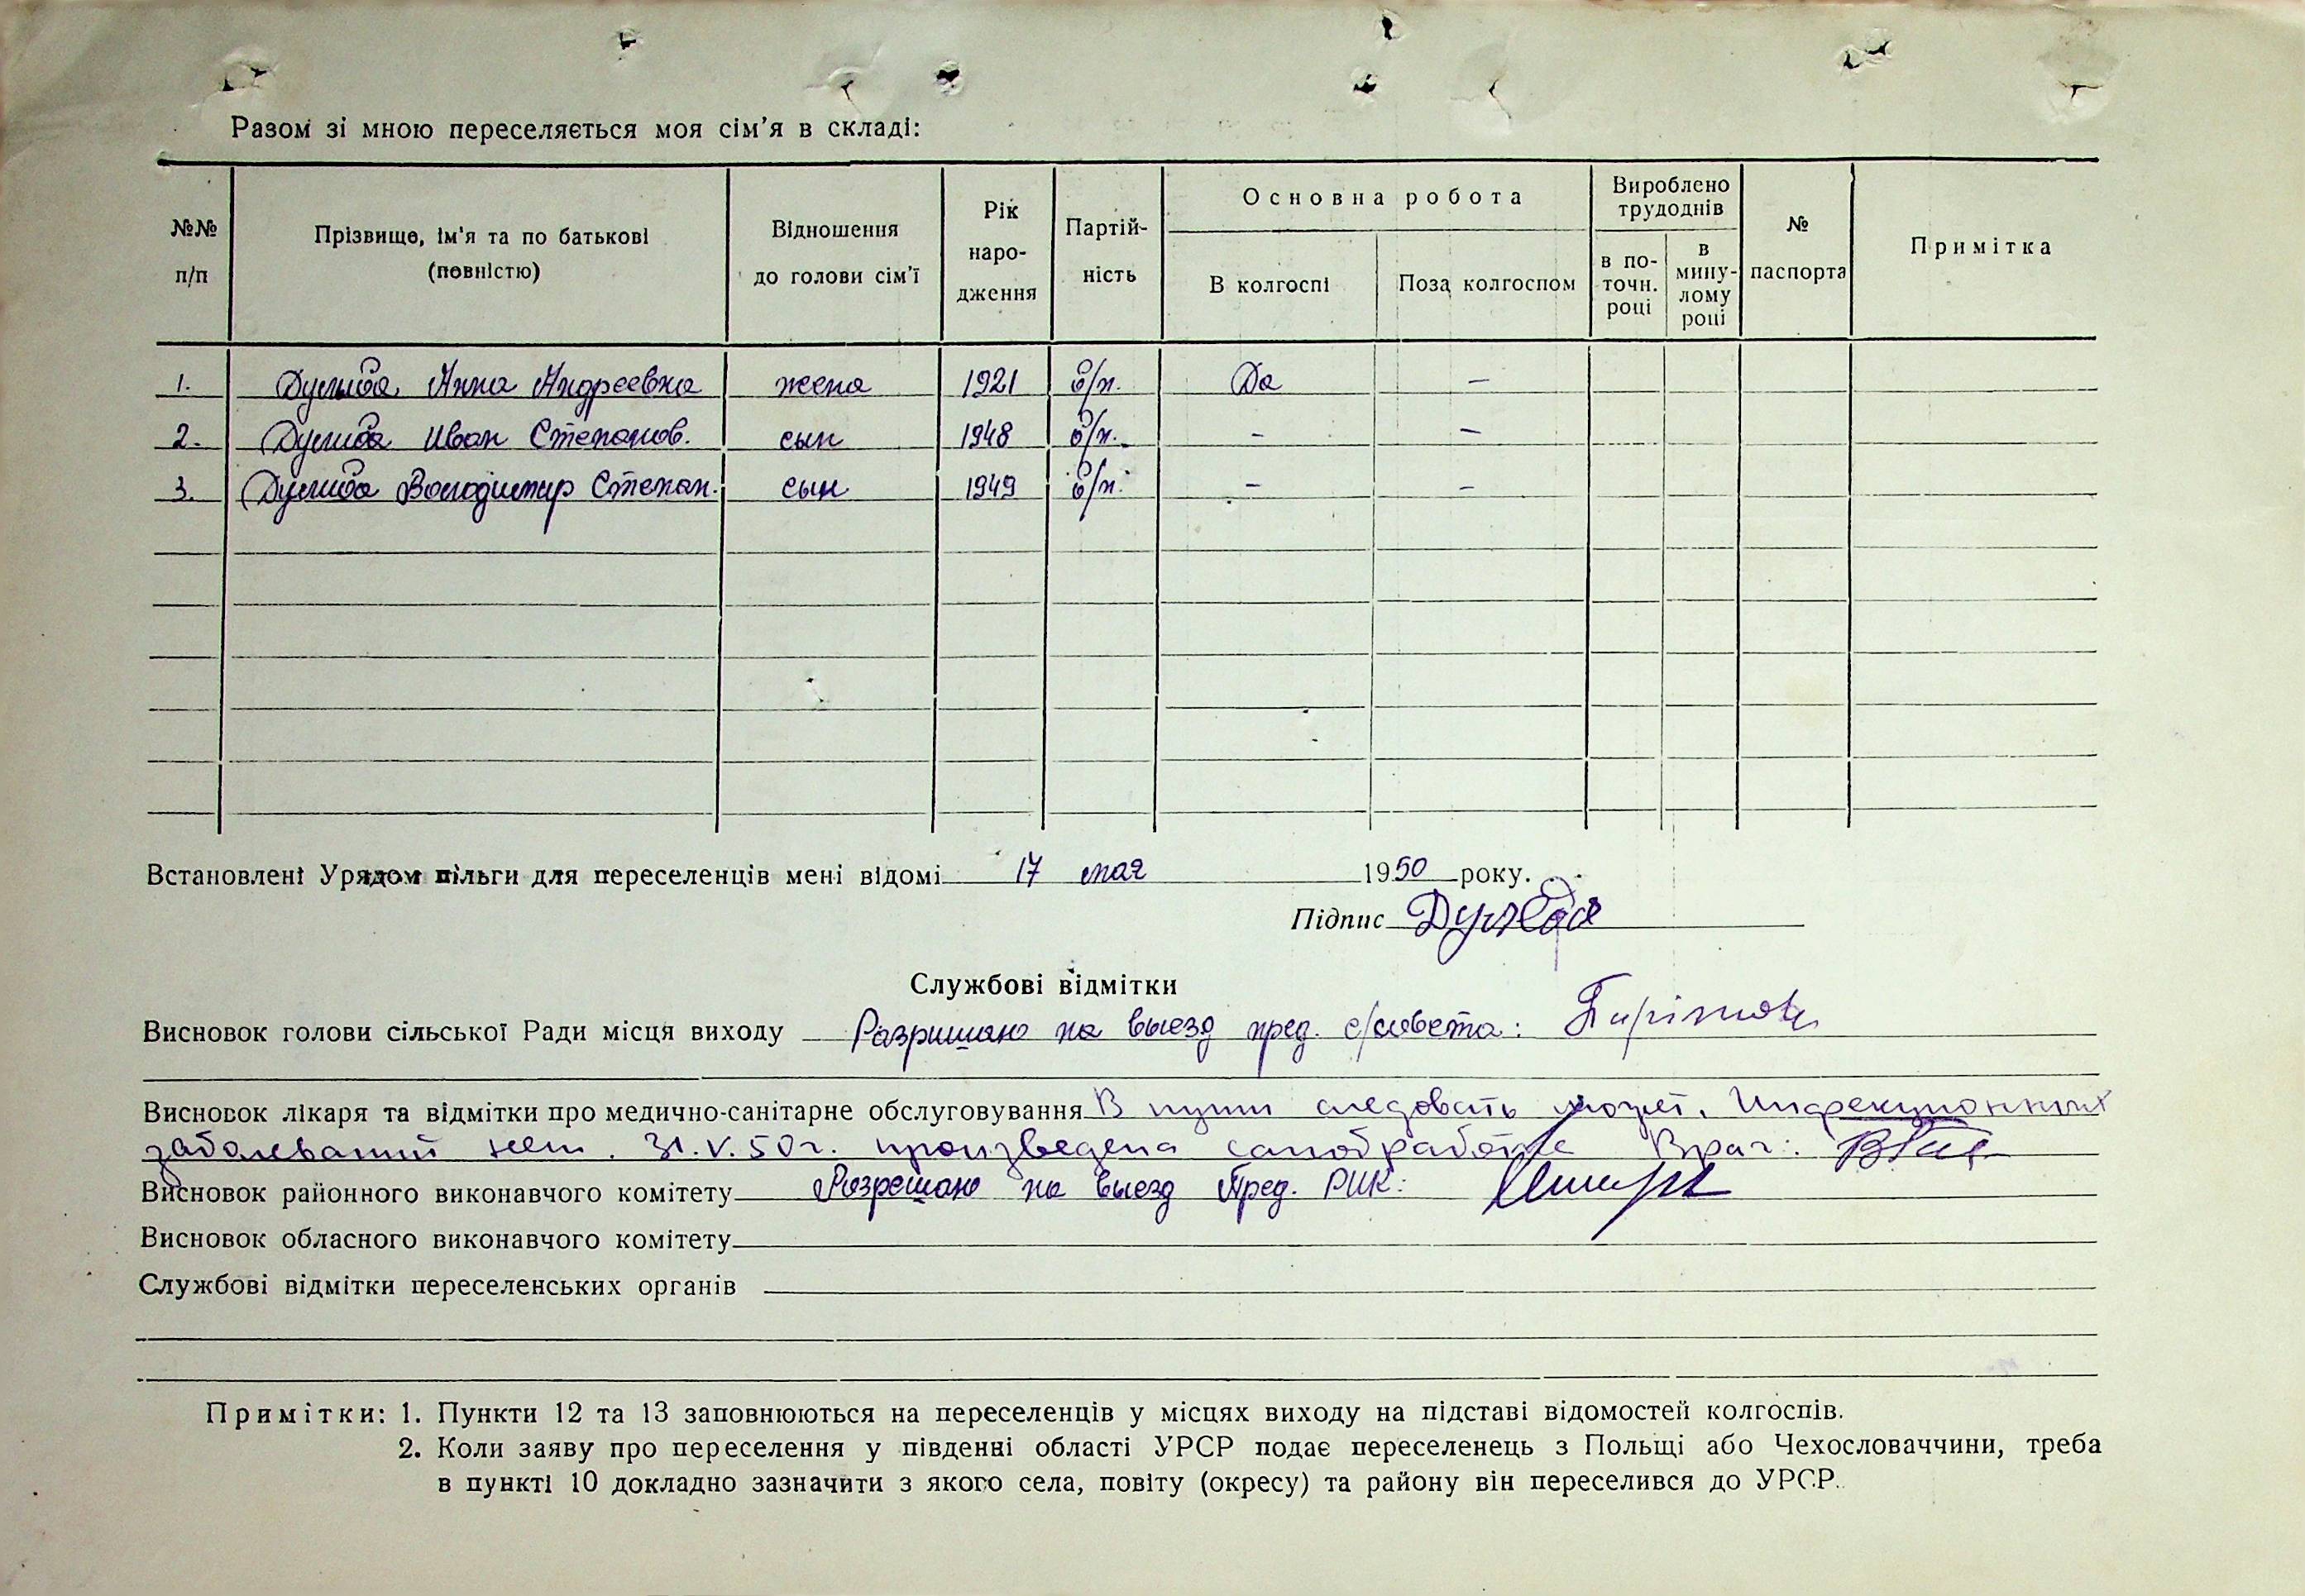 Разом зі мною переселяється моя сім'я в складі:
№№ п/п | Прізвище, ім'я та по батькові (повністю) | Відношення до голови сім'ї | Рік народження | Партійність | Основна робота | Вироблено трудоднів | № паспорта | Примітка
В колгоспі | Поза колгоспом | в поточн. році | в минулому році
1. Дулиба Анна Андреевна жена 1921 б/п. Да –
2. Дулиба Иван Степанов. сын 1948 б/п. – –
3. Дулиба Володимир Степан. сын 1949 б/п. – –
Встановлені Урядом пільги для переселенців мені відомі 17 мая 1950 року.
Підпис Дулиба
Службові відмітки
Висновок голови сільської Ради місця виходу Разришано на выезд пред. с/совета:
Висновок лікаря та відмітки про медично-санітарне обслуговування В пути следовать может. Инфекционных
заболеваний нет. 31.V.50г. произведена санобработка Врач:
Висновок районного виконавчого комітету Разрешано на выезд Пред. РИК:
Висновок обласного виконавчого комітету
Службові відмітки переселенських органів
Примітки: 1. Пункти 12 та 13 заповнюються на переселенців у місцях виходу на підставі відомостей колгоспів.
2. Коли заяву про переселення у південні області УРСР подає переселенець з Польщі або Чехословаччини, треба
в пункті 10 докладно зазначити з якого села, повіту (окресу) та району він переселився до УРСР.